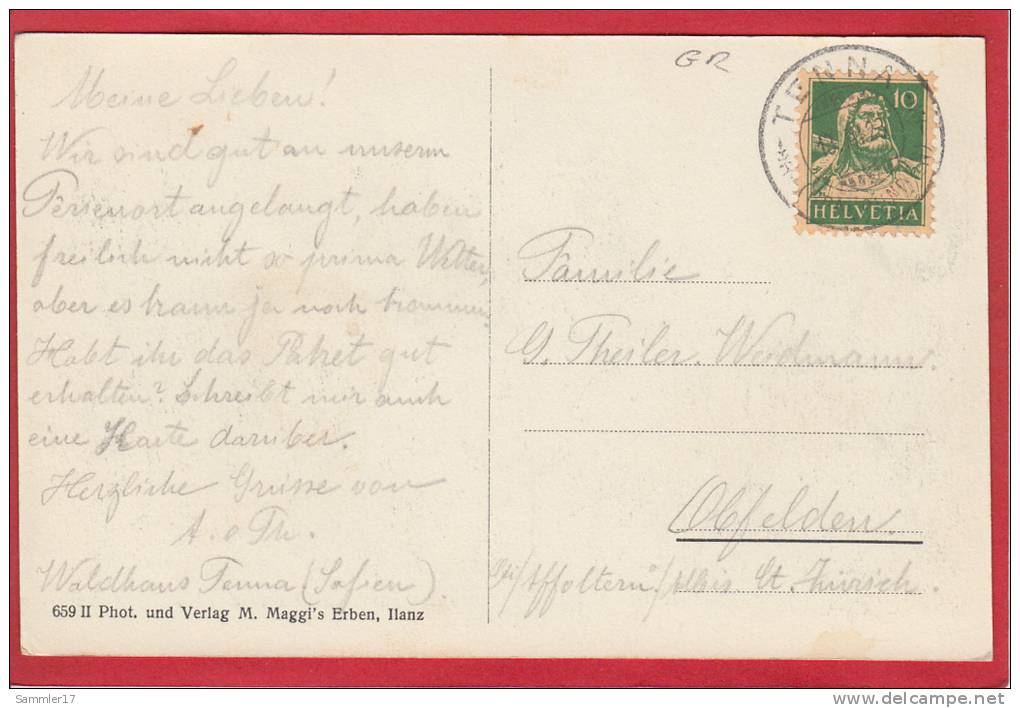 GR
TENNA
10
HELVETIA
Meine Lieben!
Wir sind gut an unserm
Ferienort angelangt, haben
freilich nicht so prima Wetter,
aber es kann ja noch kommen.
Habt ihr das Paket gut
erhalten? Schreibt mir auch
eine Karte darüber.
Herzliche Grüsse von
A. o Th.
Waldhaus Tenna (Safien).
659 II Phot. und Verlag M. Maggi's Erben, Ilanz
Familie
G. Theiler-Weidmann.
Obfelden.
Affoltern a/Albis Ct. Zürich.
Sammler17
www.delcampe.net